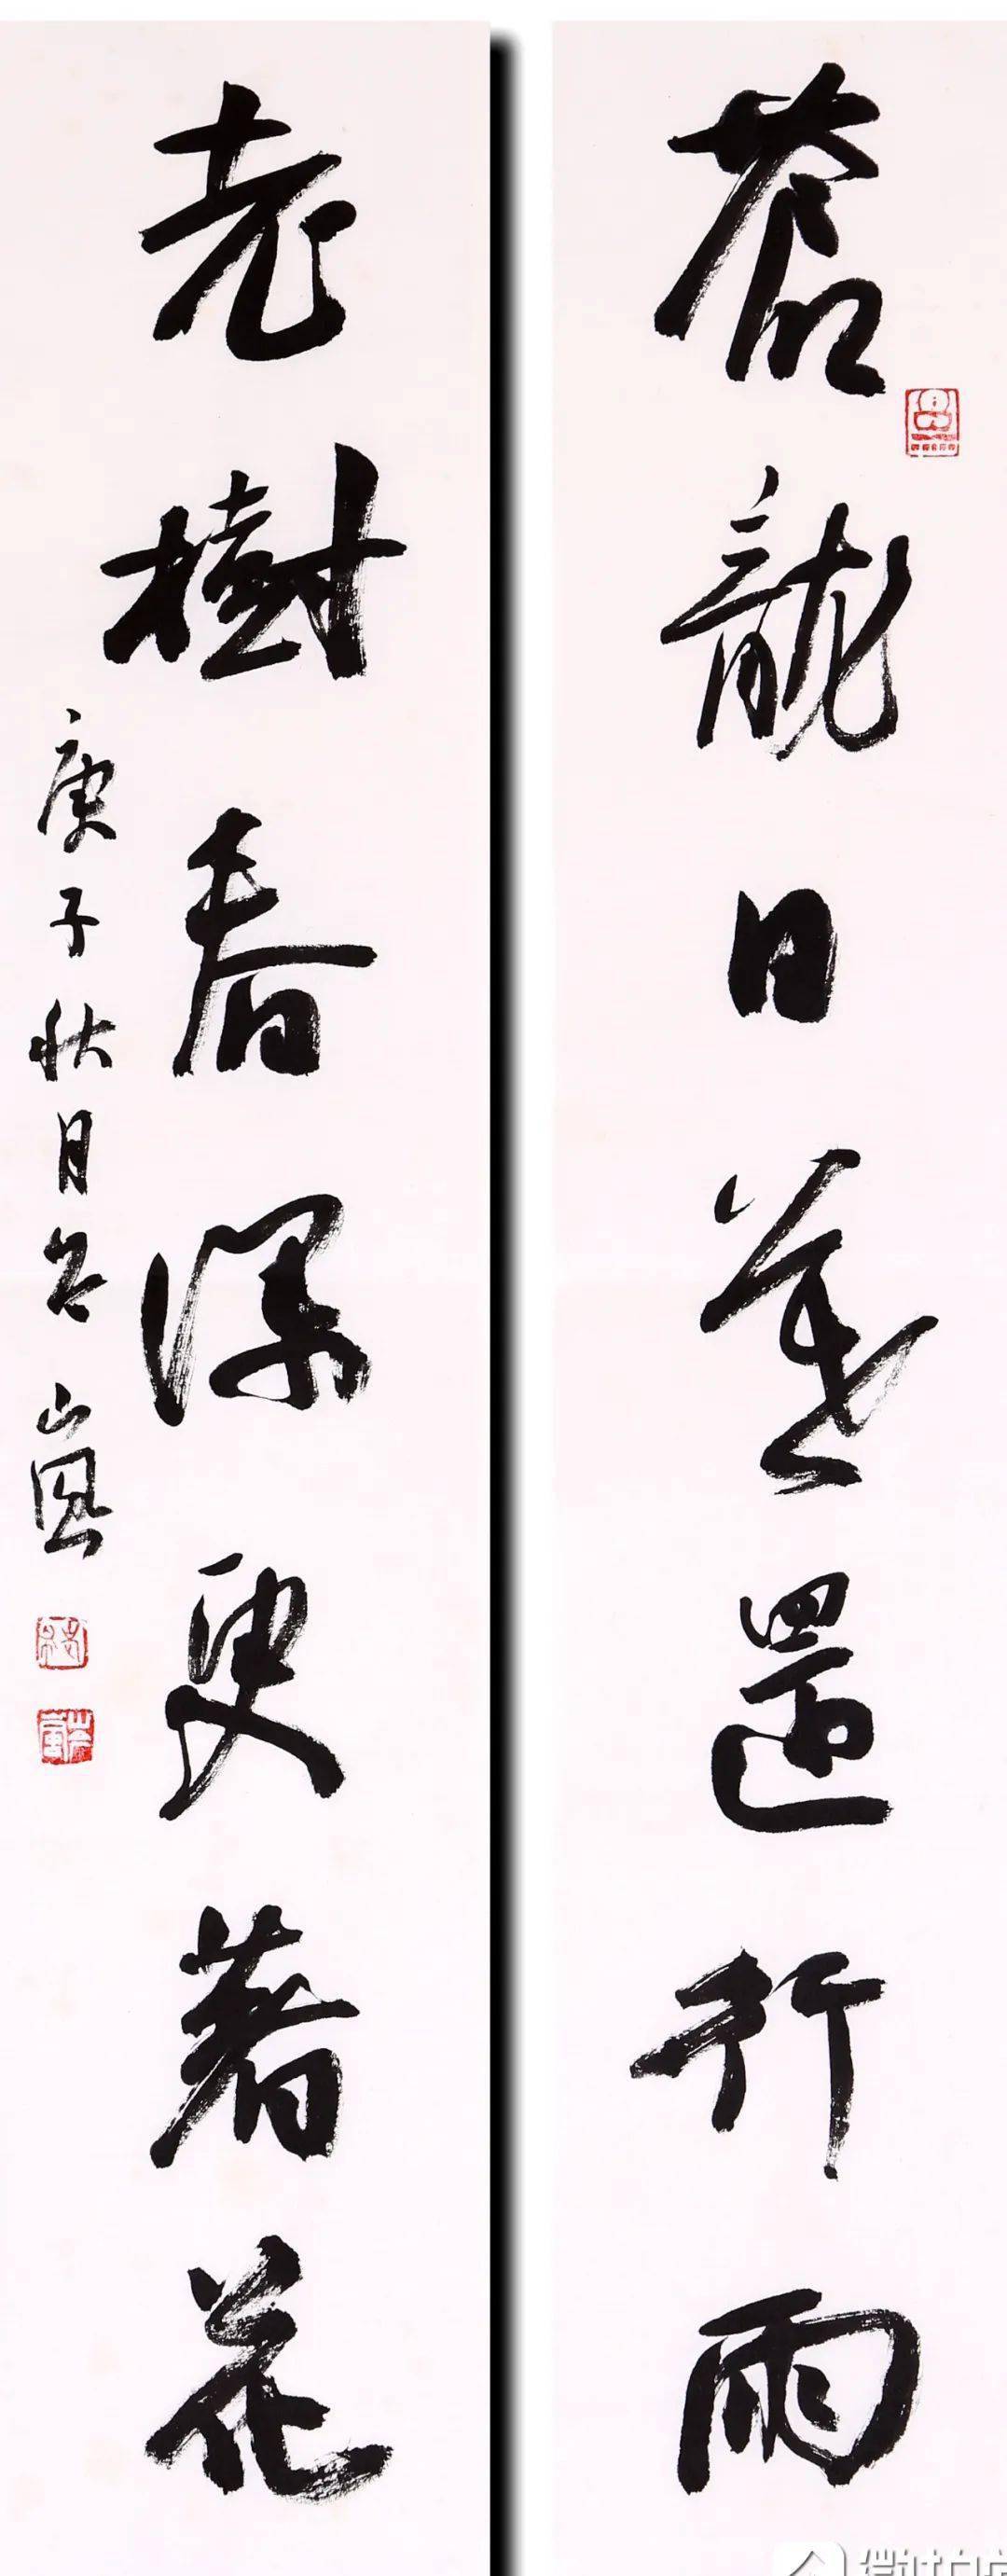 蒼龍日暮還行雨
老樹春深更著花
庚子秋月於